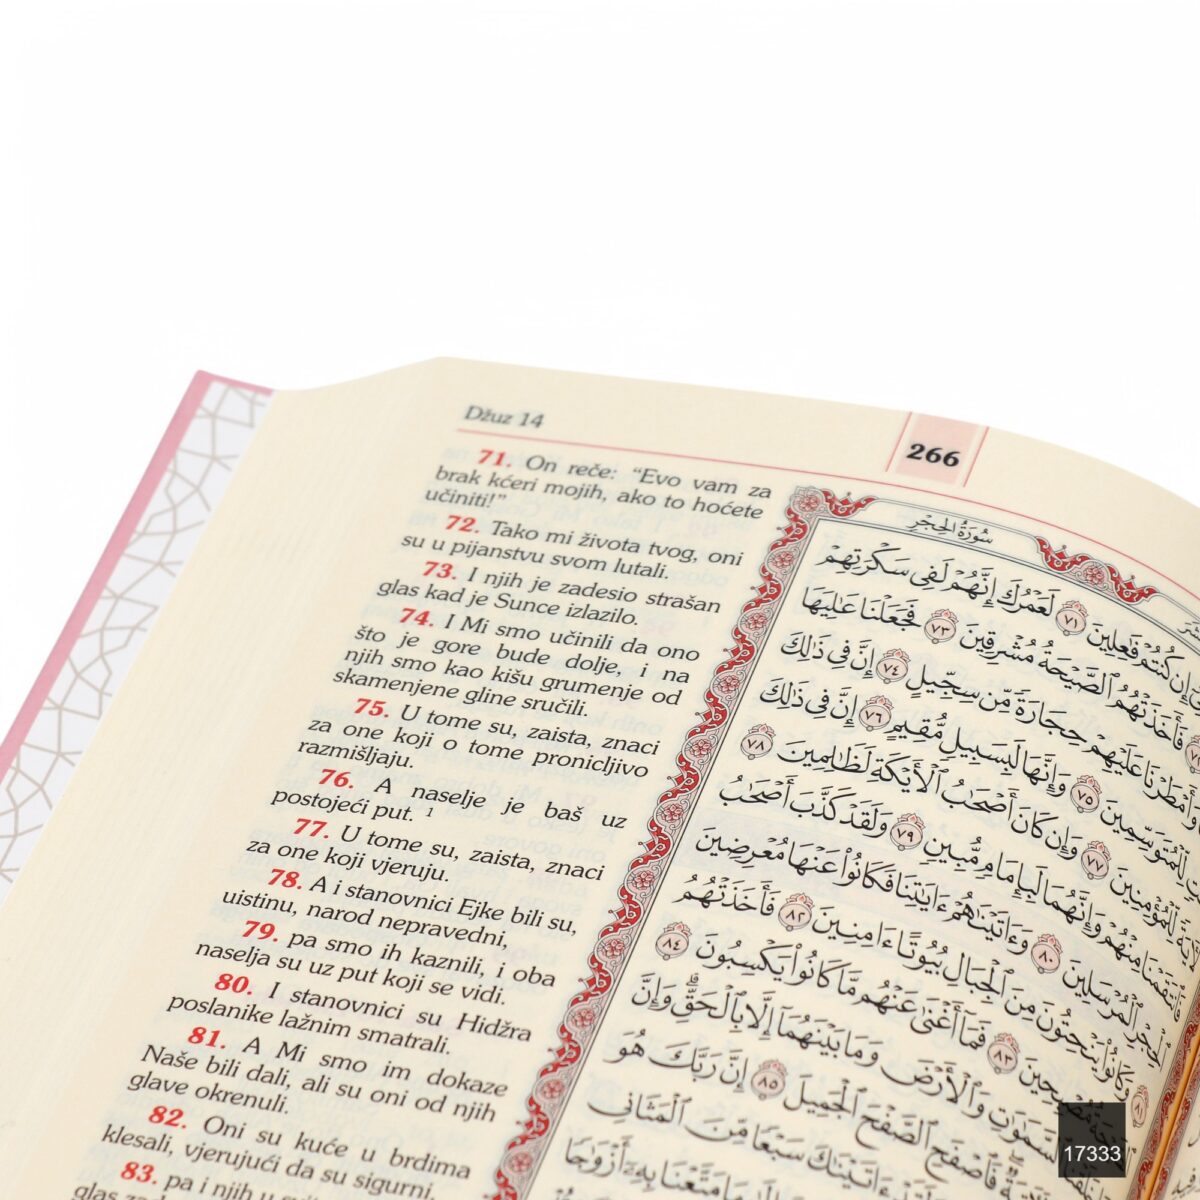 Džuz 14
266
71. On reče: “Evo vam za
brak kćeri mojih, ako to hoćete
učiniti!”
72. Tako mi života tvog, oni
su u pijanstvu svom lutali.
73. I njih je zadesio strašan
glas kad je Sunce izlazilo.
74. I Mi smo učinili da ono
što je gore bude dolje, i na
njih smo kao kišu grumenje od
skamenjene gline sručili.
75. U tome su, zaista, znaci
za one koji o tome pronicljivo
razmišljaju.
76. A naselje je baš uz
postojeći put. 1
77. U tome su, zaista, znaci
za one koji vjeruju.
78. A i stanovnici Ejke bili su,
uistinu, narod nepravedni,
79. pa smo ih kaznili, i oba
naselja su uz put koji se vidi.
80. I stanovnici su Hidžra
poslanike lažnim smatrali.
81. A Mi smo im dokaze
Naše bili dali, ali su oni od njih
glave okrenuli.
82. Oni su kuće u brdima
klesali, vjerujući da su sigurni,
83. pa i njih u
glas
سُورَةُ الحِجْرِ
إِن كُنتُمْ فَٰعِلِينَ ٧١ لَعَمْرُكَ إِنَّهُمْ لَفِى سَكْرَتِهِمْ
فَأَخَذَتْهُمُ ٱلصَّيْحَةُ مُشْرِقِينَ ٧٣ فَجَعَلْنَا عَٰلِيَهَا
وَأَمْطَرْنَا عَلَيْهِمْ حِجَارَةً مِّن سِجِّيلٍ ٧٤ إِنَّ فِى ذَٰلِكَ
لِّلْمُتَوَسِّمِينَ ٧٥ وَإِنَّهَا لَبِسَبِيلٍ مُّقِيمٍ ٧٦ إِنَّ فِى ذَٰلِكَ
لِّلْمُؤْمِنِينَ ٧٧ وَإِن كَانَ أَصْحَٰبُ ٱلْأَيْكَةِ لَظَٰلِمِينَ ٧٨
مِنْهُمْ وَإِنَّهُمَا لَبِإِمَامٍ مُّبِينٍ ٧٩ وَلَقَدْ كَذَّبَ أَصْحَٰبُ
ٱلْمُرْسَلِينَ ٨٠ وَءَاتَيْنَٰهُمْ ءَايَٰتِنَا فَكَانُوا۟ عَنْهَا مُعْرِضِينَ
وَكَانُوا۟ يَنْحِتُونَ مِنَ ٱلْجِبَالِ بُيُوتًا ءَامِنِينَ ٨٢ فَأَخَذَتْهُمُ
مُصْبِحِينَ ٨٣ فَمَآ أَغْنَىٰ عَنْهُم مَّا كَانُوا۟ يَكْسِبُونَ ٨٤
وَٱلْأَرْضَ وَمَا بَيْنَهُمَآ إِلَّا بِٱلْحَقِّ وَإِنَّ
فَٱصْفَحِ ٱلصَّفْحَ ٱلْجَمِيلَ ٨٥ إِنَّ رَبَّكَ هُوَ
ءَاتَيْنَٰكَ سَبْعًا مِّنَ ٱلْمَثَانِى
مَا مَتَّعْنَا بِهِۦٓ أَزْوَٰجًا
17333